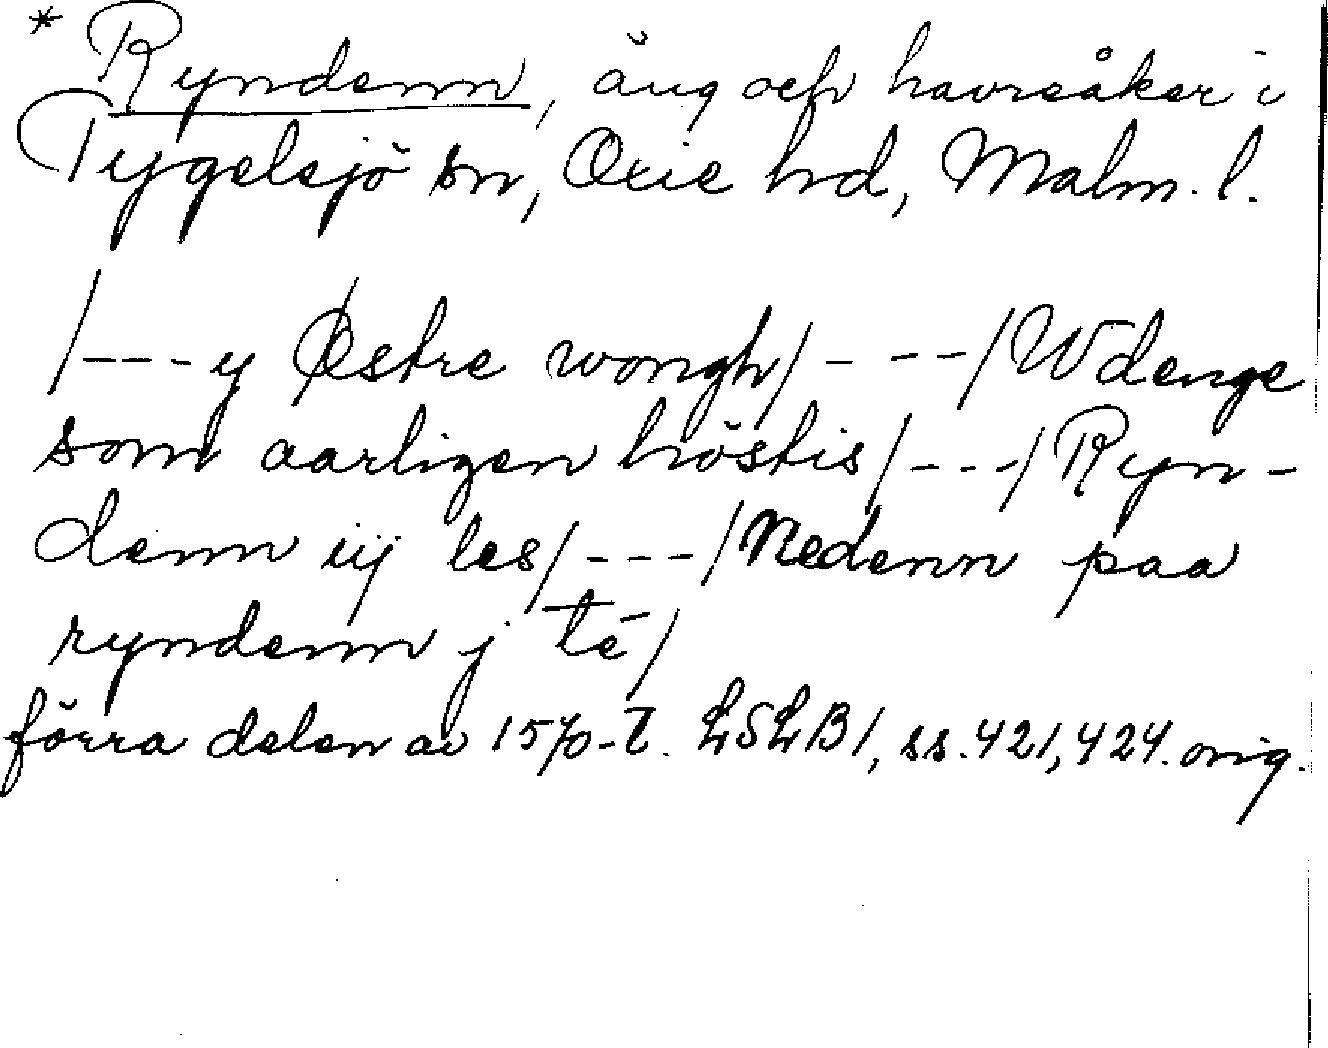 * Ryndenn, äng och havreåker i
Tygelsjö sn, Oxie hd, Malm. l.
/---y Østre wongh/---/Wdenge
som aarligen höstis/---/Ryn-
denn iij les/---/Nedenn paa
ryndenn j té/
förra delen av 1570-t. LSLB1, ss. 421, 424. orig.